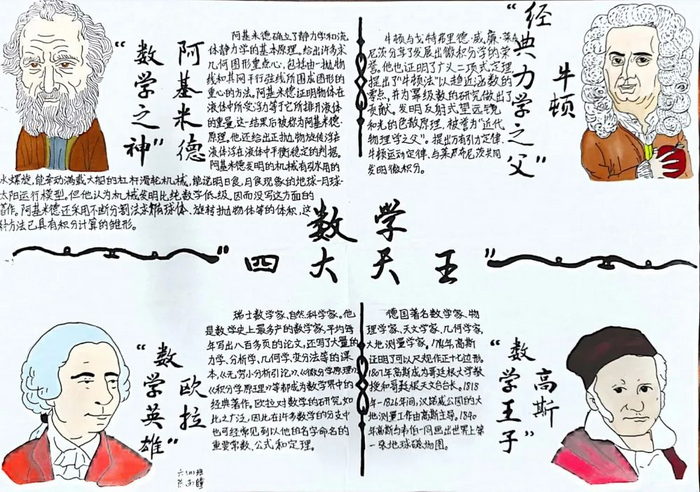 "数学之神"
阿基米德
阿基米德确立了静力学和流
体静力学的基本原理。给出许多求
几何图形重心,包括由一抛物
线和其网平行弦线所围成图形的
重心的方法。阿基米德证明物体在
液体中所受浮力等于它所排开液体
的重量,这一结果后被称为阿基米德
原理。他还给出正抛物旋转体浮在
液体浮在液体中平衡稳定的判据。
阿基米德发明的机械有引水用的
水螺旋,能牵动满载大船的杠杆滑轮机械,能说明日食,月食现象的地球-月球-
太阳运行模型。但他认为机械发明比纯数学低级,因而没写这方面的
著作。阿基米德还采用不断分割法求椭球体、旋转抛物体等的体积,这
种方法已具有积分计算的雏形。
"经典力学之父"
牛顿
牛顿与戈特弗里德·威廉·莱布
尼茨分享了发展出微积分学的荣
誉。他也证明了广义二项式定理,
提出了"牛顿法"以趋近函数的
零点,并为幂级数的研究做出了
贡献。发明反射式望远镜
和光的色散原理,被誉为"近代
物理学之父"。提出万有引力定律,
牛顿运动定律,与莱布尼茨发明
发明微积分。
数学
"四大天王"
"数学英雄"
欧拉
瑞士数学家,自然科学家。他
是数学史上最多产的数学家,平均每
年写出八百多页的论文,还写了大量的
力学,分析学,几何学,变分法等的课
本,《无穷小分析引论》,《微分学原理》,
《积分学原理》等都成为数学界中的
经典著作。欧拉对数学的研究如
此之广泛,因此在许多数学的分支中
也可经常见到以他的名字命名的
重要常数,公式和定理。
"数学王子"
高斯
德国著名数学家、物
理学家、天文学家、几何学家,
大地测量学家。1796年,高斯
证明了可以尺规作正十七边形。
1807年高斯成为哥廷根大学教
授和哥廷根天文台台长。1818
年-1826年间,汉诺威公国的大
地测量工作由高斯主导。1840
年高斯与韦伯一同画出世界上第
一张地球磁场图。